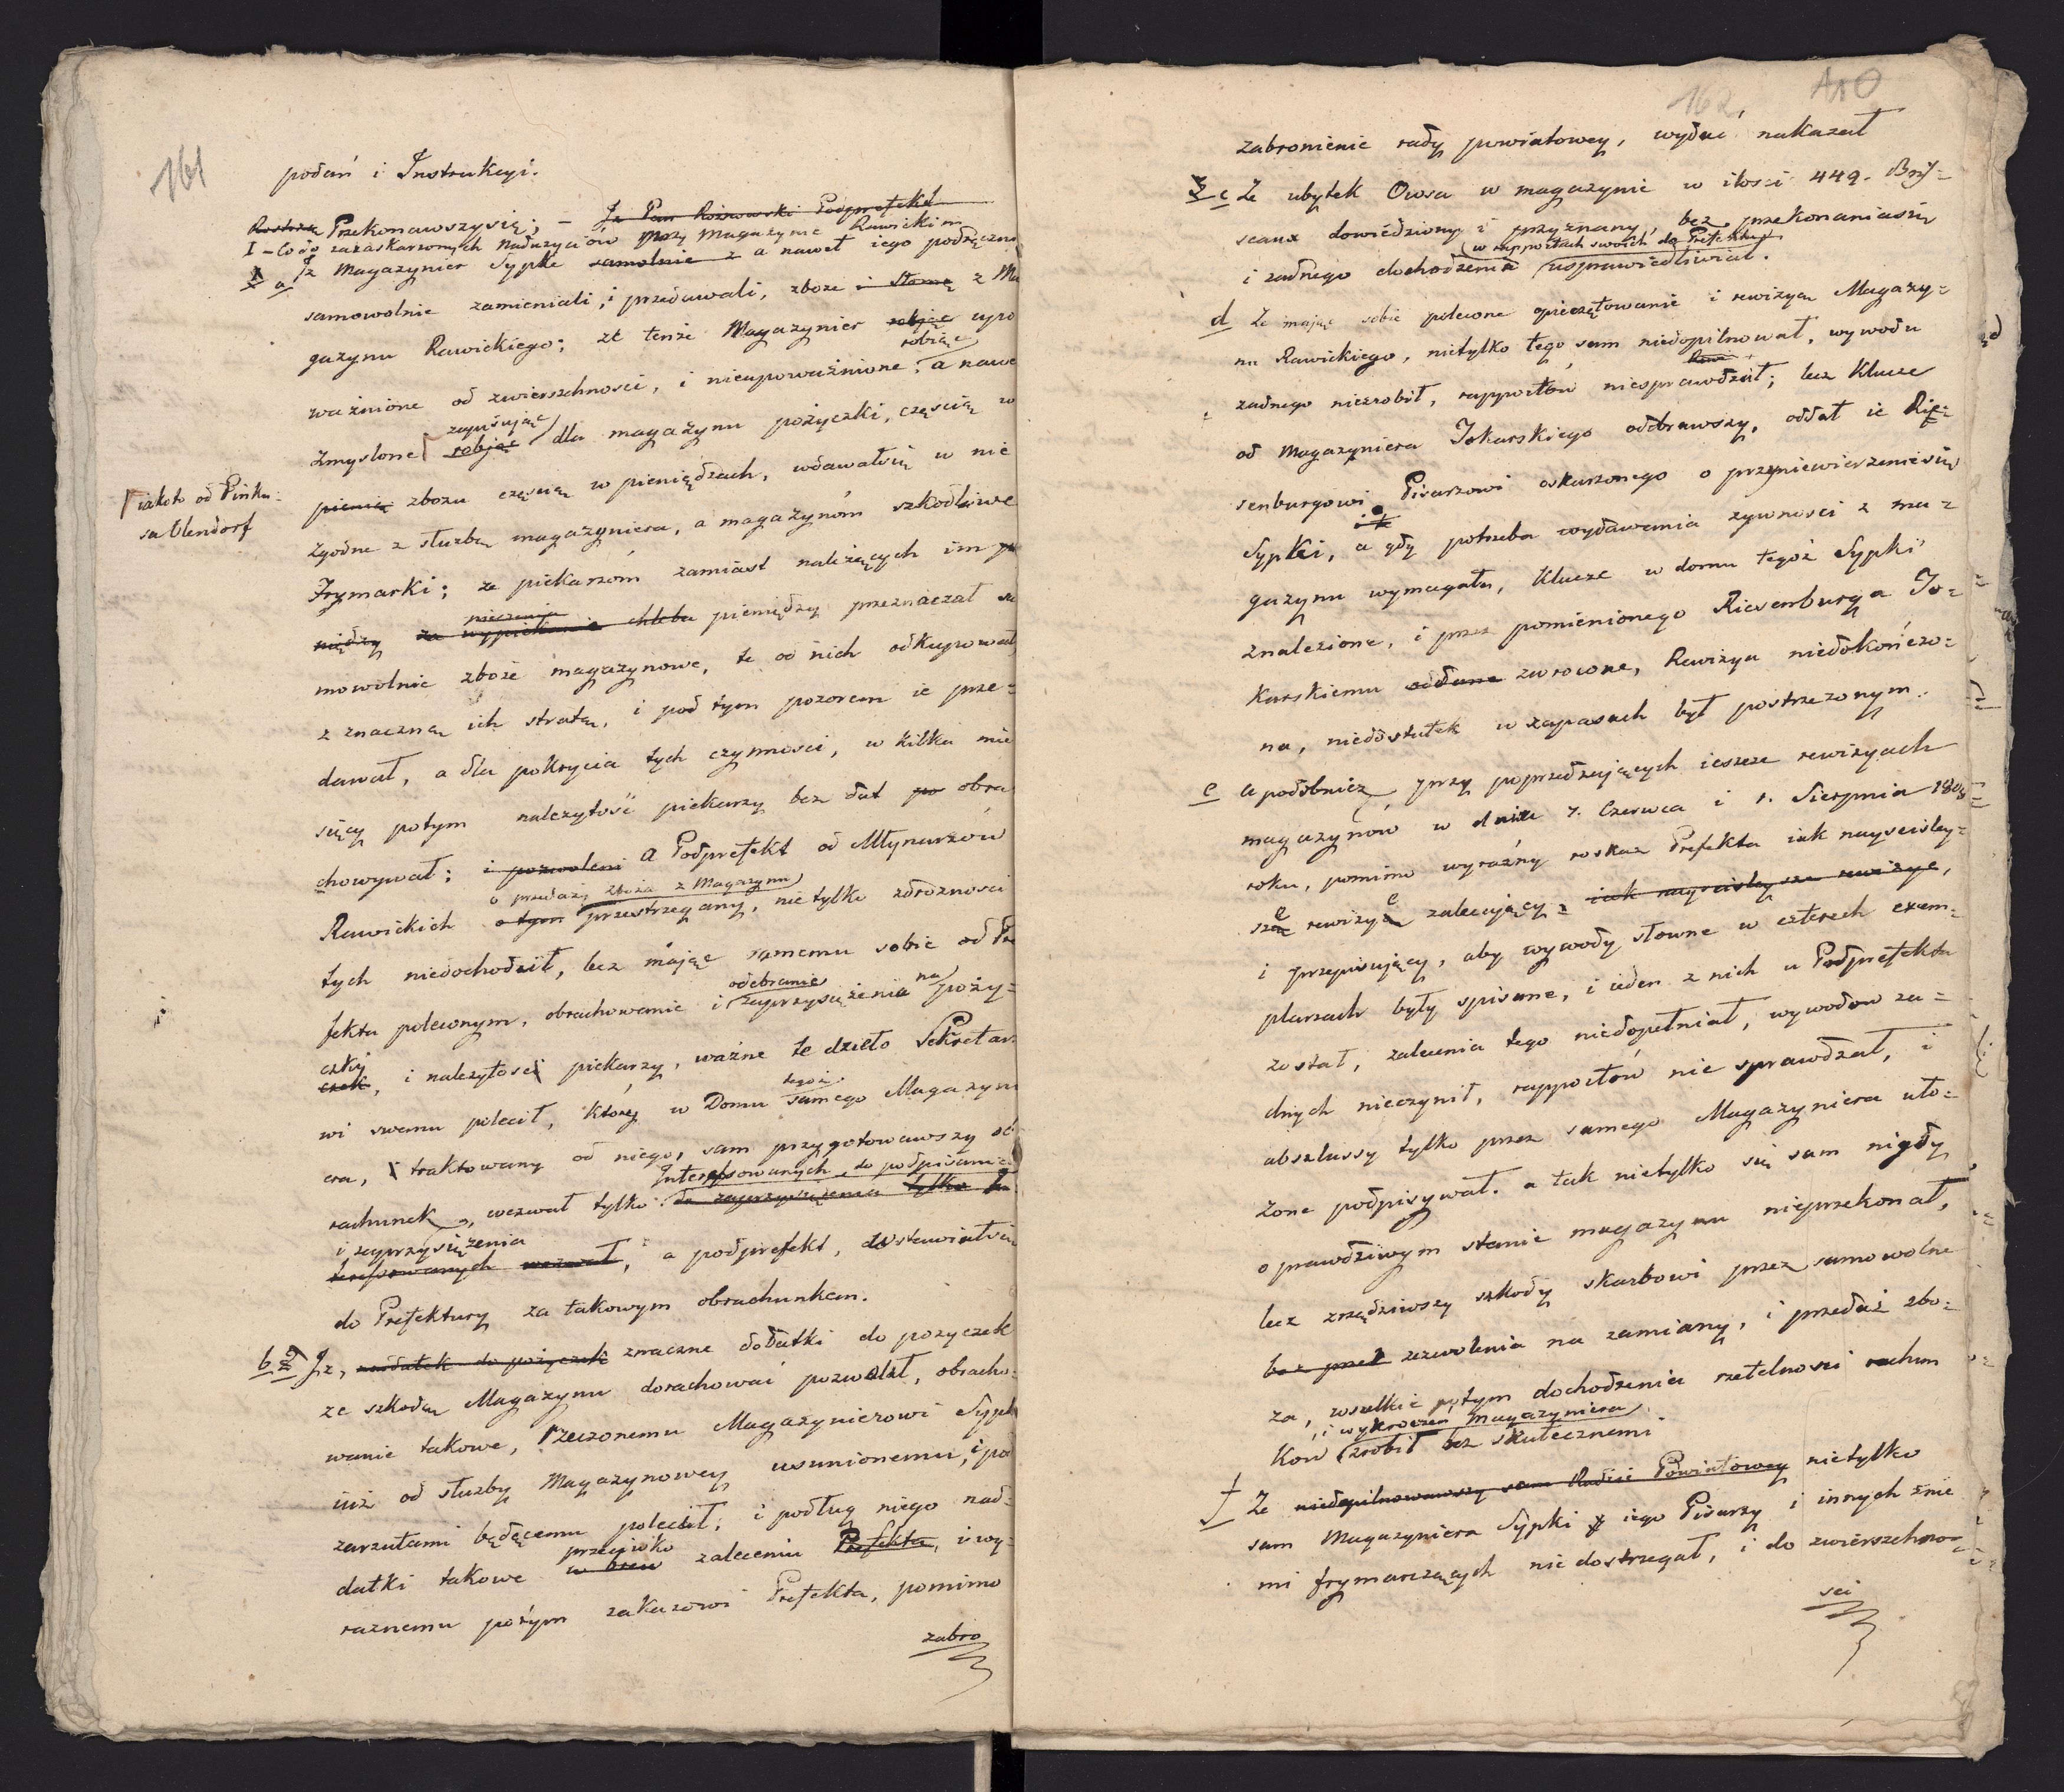 161
podań i Instrukcyi.
Przekonawszy się; – Iż Pan Rożnowski Podprefekt
I – Co do zaskarzonych naduzyciów przy Magazynie Rawickim
a/ Iz Magazynier Sypke samolnie z a nawet iego podręczni
samowolnie zamieniali, i przedawali, zboże i słomę z Ma
gazynu Rawickiego; że tenże Magazynier robiąc upo
robiąc
ważnione od zwierzchnosci, i nieupoważnione, a nawe
zapisując
zmyslone robiąc dla magazynu pożyczki, częscią w
iakoto od Pinku=
sa Elendorf
pienią zbożu częscią w pieniądzach, wdawałsię w nie
zgodne z służbą magazyniera, a magazynóm szkodliwe
frymarki; że piekarzóm zamiast należących im pie
pieczenia
niędzy za wypiekanie chleba pieniędzy przeznaczał sa
mowolnie zboże magazynowe, te od nich odkupował
z znaczną ich stratą, i pod tym pozorem ie prze=
dawał, a dla pokrycia tych czynnosci, w kilka mie
sięcy potym należytość piekarzy bez dat po obra
chowywał; i pozwoleni a Podprefekt od Młynarzów
o przedaży zboża z Magazynu
Rawickich o tym przestrzegany, nie tylko zdrożnosci
tych niedochodził, lecz mając samemu sobie od Pre
odebranie na
fekta poleconym, obrachowanie i zaprzysiężenia poży=
czki
czek, i należytosci piekarzy, ważne te dzieło Sekretarz
wi swemu polecił, który w Domu tegoż samego Magazyni
era, i traktowany od niego, sam przygotowawszy ob
Interessowanych, do podpisani
rachunek, wezwał tylko do zaprzysiężenia tylko In
i zaprzysiężenia
teressowanych wezwał, a podprefekt, dostawiałsię
do Prefektury za takowym obrachunkem.
b 2 Iz, naddatek do pożyczek znaczne dodatki do pozyczek
ze szkodą Magazynu dorachować pozwolił, obracho=
wanie takowe, rzeczonemu Magazynierowi Sypk
iuż od służby Magazynowey usunionemu, i pod
zarzutami będącemu polecił, i podług niego nad=
przeciwko
datki takowe w brew zaleceniu Prefekta, i wy=
raznemu potym zakazowi Prefekta, pomimo
zabro
162
zabronienie rady powiatowey, wydać nakazał
c Ze ubytek Owsa w magazynie w ilosci 449. Boys=
seaux dowiedziony i przyznany, bez przekonaniasię
w rapportach swoich do Prefektury
i zadnego dochodzenia usprawiedliwiał.
d Ze mając sobie polecone opieczętowanie i rewizyą Magazy=
nu Rawickiego, nietylko tego sam niedopilnował, wywodu
zadnego niezrobił, rapportów niesprawdził; lecz Klucze
od Magazyniera Tokarskiego odebrawszy, oddał ie Rie=
senburgowi Pisarzowi oskarzonego o przeniewierzeniesię
Sypki, a gdy potrzeba wydawania zywnosci z ma=
gazynu wymagała, Klucze w domu tegoż Sypki
znalezione, i przez pomienionego Riesenburga To=
karskiemu oddane zwrocone, Rewizya niedokończo=
na, niedostatek w zapasach był postrzezonym.
e a podobniez, przy poprzedzających ieszcze rewizyach
magazynow w dniu 7. Czerwca i 1. Sierpnia 1808
roku, pomimo wyraźny roskaz Prefekta iak nayscisley=
sze rewizye zalecający, iak nayscisleysze rewizye,
i przepisujący, aby wywody słowne w czterech exem=
plarzach były spisane, i ieden z nich u Podprefekta
został, zalecenia tego niedopełniał, wywodow za=
dnych nieczynił, rapportów nie sprawdzał, i
abszlussy tylko przez samego Magazyniera uło=
żone podpisywał. a tak nietylko się sam nigdy
o prawdziwym stanie magazynu nieprzekonał,
lecz zrządziwszy szkody skarbowi przez samowolne
bez przek zezwolenia na zamiany, i przedaż zbo=
ża, wszelkie potym dochodzenia rzetelnosci rachun
i wykroczeń Magazyniera
kow zrobił bez skutecznemi
f Ze niedopilnowawszy sam Radzie Powiatowey nietylko
sam Magazyniera Sypki iego Pisarzy i innych z nie
mi frymarczących nie dostrzegał, i do zwierzchno=
sci